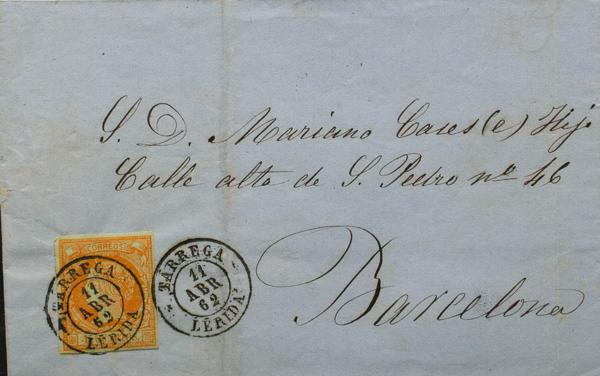 S. D. Mariano Cases (e) Hijo
Calle alta de S. Pedro nº 46
Barcelona
CORREOS
TARREGA
11
ABR
62
LÉRIDA
TARREGA
11
ABR
62
LÉRIDA